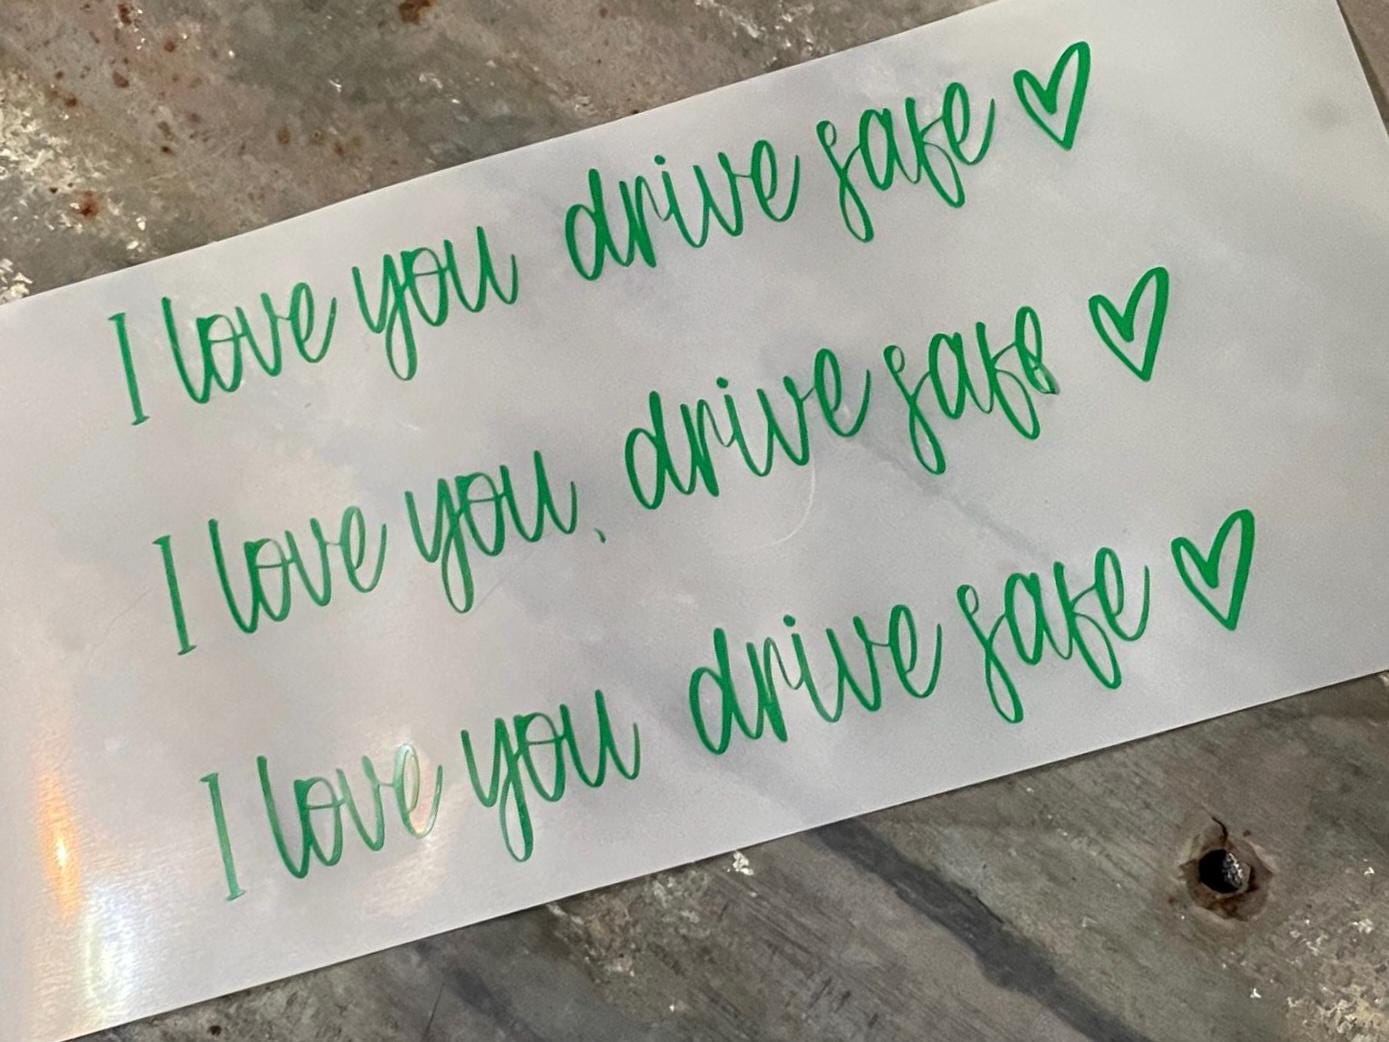 I love you drive safe ♡
I love you, drive safe ♡
I love you drive safe ♡